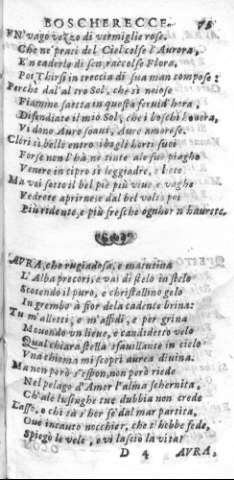 BOSCHERECCE.
VN' vago vezzo di vermiglie rose,
Che ne' prati del Ciel colse l'Aurora,
E'n caderlo di sen, raccolse Flora,
Poi Thirsi in treccia di sua man compose:
Perche dal'altro Sol, che sì noiose
Fiamme saetta in questa feruid'hora,
Difendiate il mio Sol, che i boschi honora,
Vi dono Aure soaui, Aure amorose.
Clori sì belle entro ibagli horti suoi
Forse non l'hà nè tinte ale sue piaghe
Venere in cipro sì leggiadre, e liete
Ma voi sotto il bel piè più viue e vaghe
Vedrete aprirne dal bel volto poi
Più ridenti, e più fresche ognhor n'haurete.
AVRA, che rugiadosa, e matutina
L'Alba precorri, e vai di stelo in stelo
Scotendo il puro, e christallino gelo
In grembo à fior dela cadente brina:
Tu m'alletti, e m'affidi, e per grina
Mouendo vn lieue, e candidetto velo
Qual chiara stella sfauillante in cielo
Vna chioma mi scopri aurea diuina.
Ma non però s'espon, non però riede
Nel pelago d'Amor l'alma schernita,
Ch'ale lusinghe tue dubbia non crede
Lasso, e chi sà s'her se dal mar partita,
Oue incauto nocchier, che t'hebbe fede,
Spiegò le vele, e vi lasciò la vita?
D 4 AVRA,